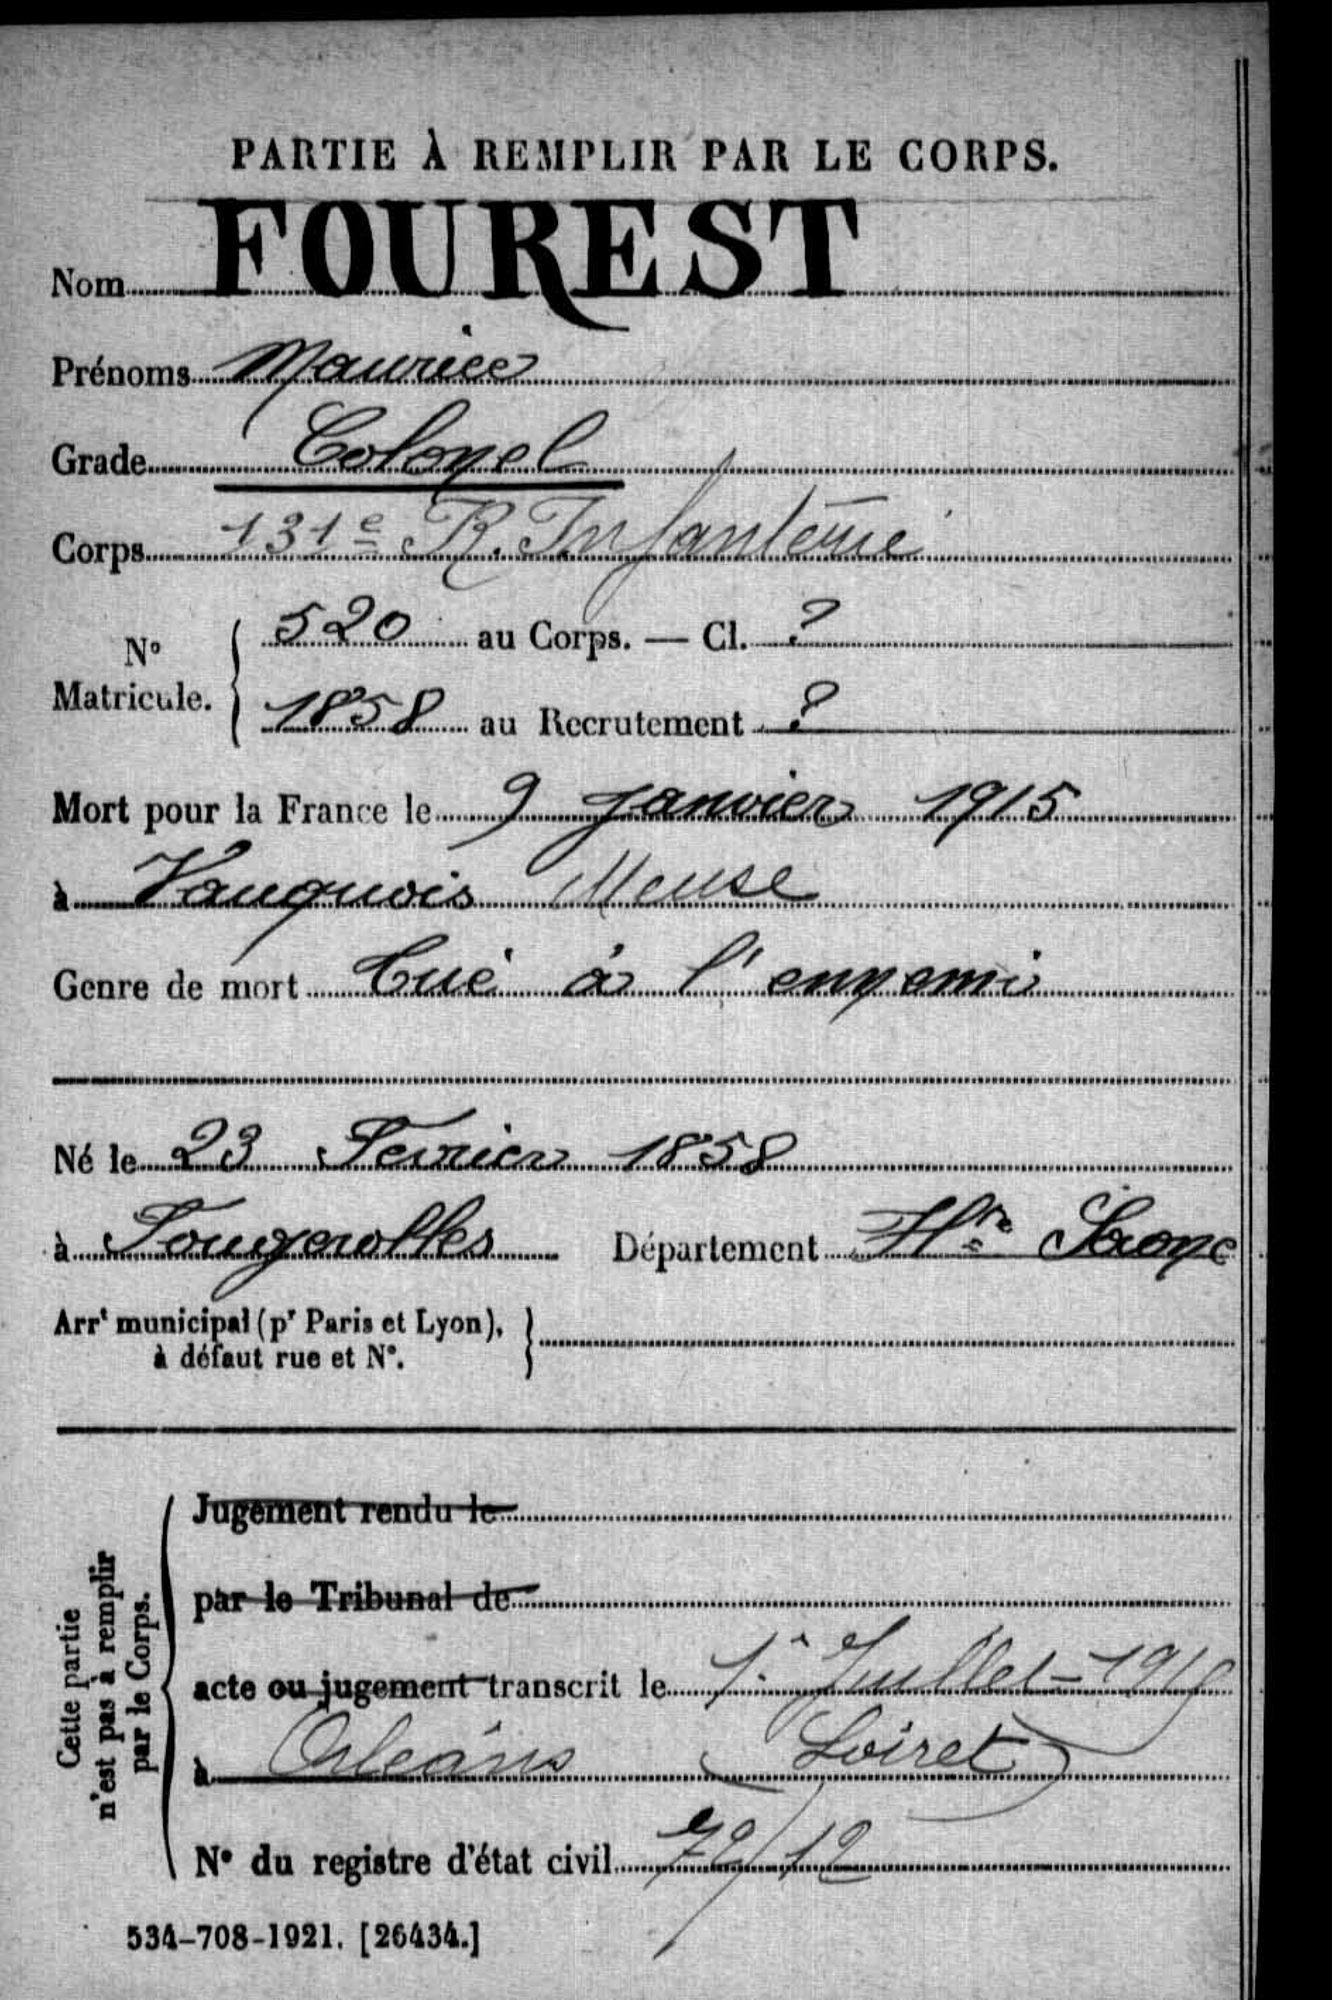 PARTIE À REMPLIR PAR LE CORPS.
Nom FOUREST
Prénoms Maurice
Grade Colonel
Corps 131e R. Infanterie
No Matricule. 520 au Corps. — Cl. ?
1858 au Recrutement ?
Mort pour la France le 9 Janvier 1915
à Vauquois Meuse
Genre de mort Tué à l'ennemi
Né le 23 Fevrier 1858
à Fougerolles Département Hte Saone
Arrt municipal (pr Paris et Lyon),
à défaut rue et N°.
Cette partie
n'est pas à remplir
par le Corps.
Jugement rendu le
par le Tribunal de
acte ou jugement transcrit le 1er Juillet
à Orléans (Loiret)
N° du registre d'état civil 72/12
534-708-1921. [26434.]